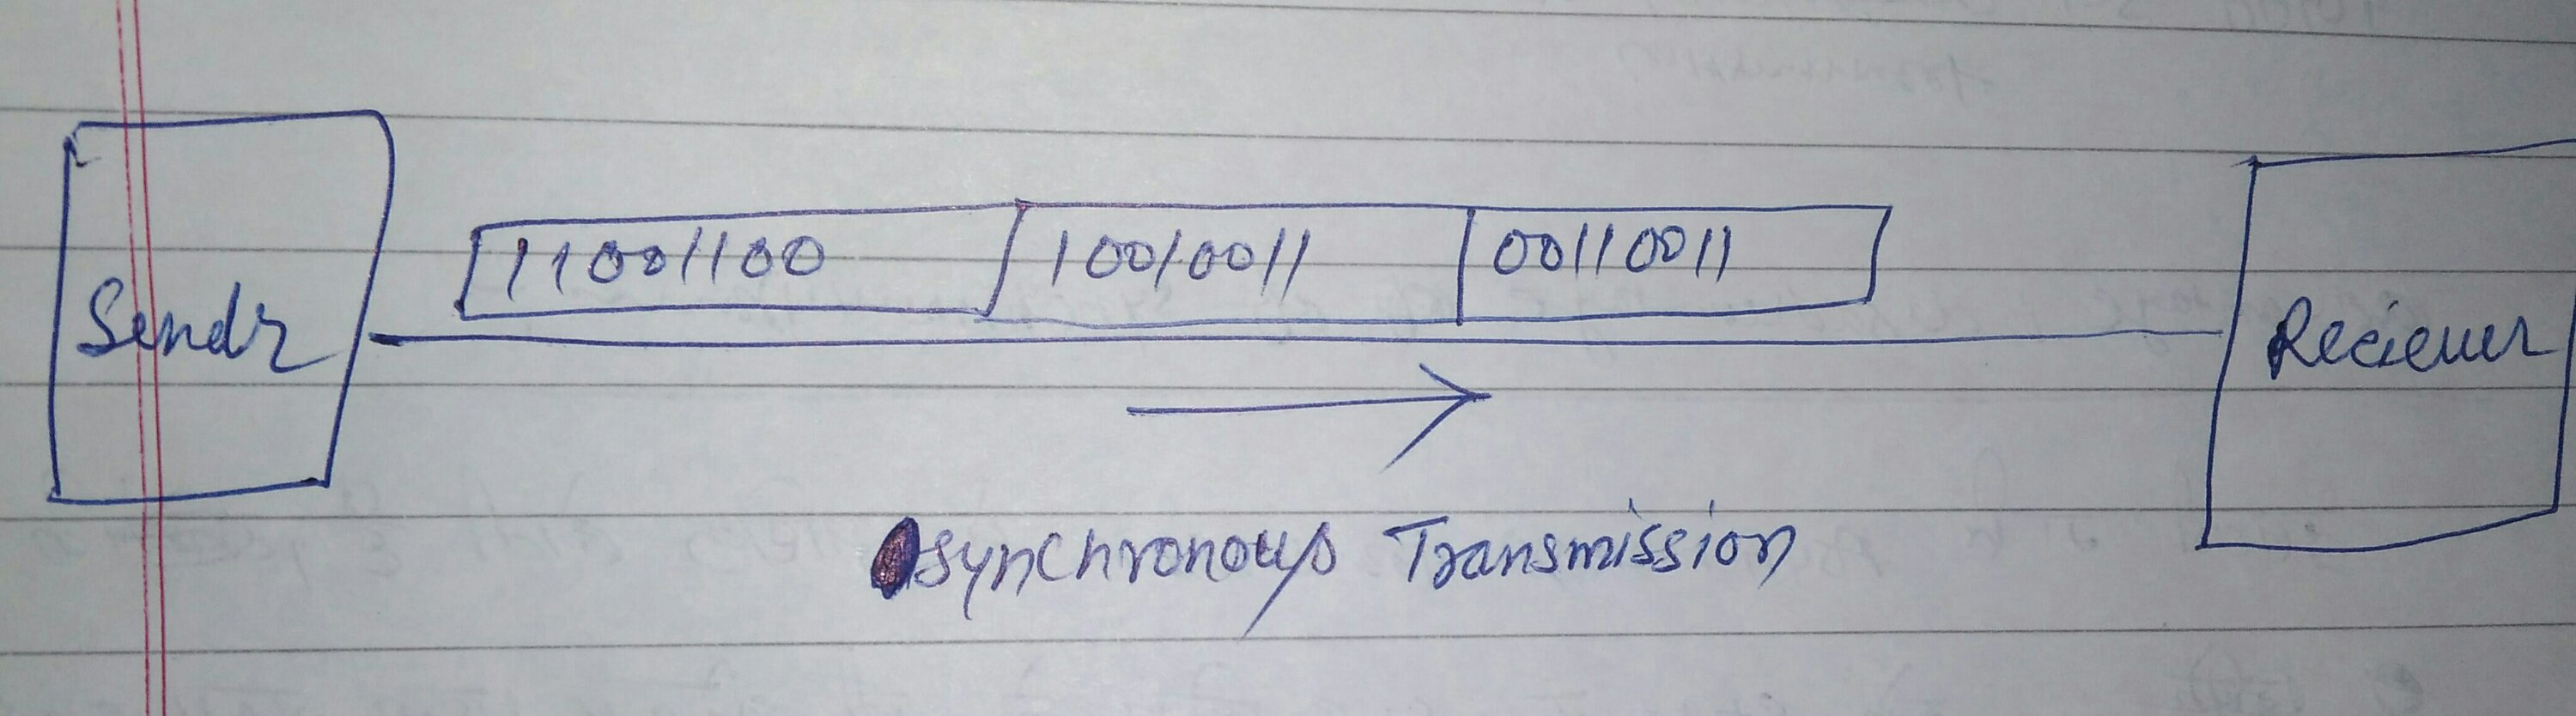 Sendr
11001100 10010011 00110011
Reciever
synchronous Transmission